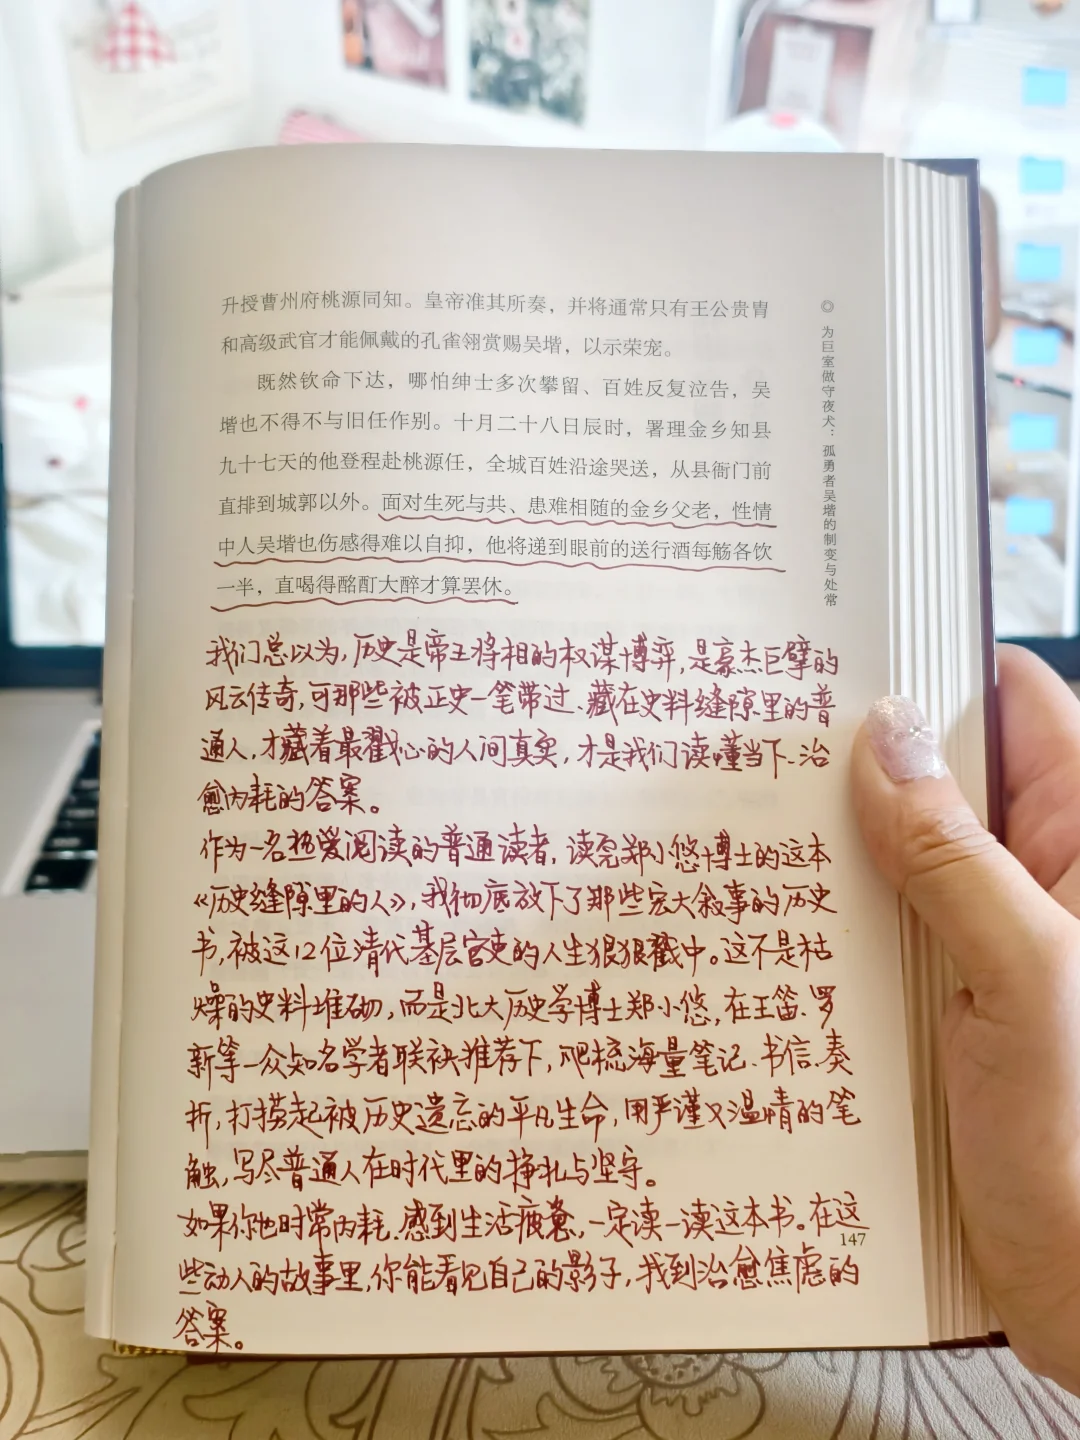 升授曹州府桃源同知。皇帝准其所奏，并将通常只有王公贵胄
和高级武官才能佩戴的孔雀翎赏赐吴堦，以示荣宠。
既然钦命下达，哪怕绅士多次攀留、百姓反复泣告，吴
堦也不得不与旧任作别。十月二十八日辰时，署理金乡知县
九十七天的他登程赴桃源任，全城百姓沿途哭送，从县衙门前
直排到城郭以外。面对生死与共、患难相随的金乡父老，性情
中人吴堦也伤感得难以自抑，他将递到眼前的送行酒每觞各饮
一半，直喝得酩酊大醉才算罢休。
◎ 为巨室做守夜犬：孤勇者吴堦的制变与处常
我们总以为，历史是帝王将相的权谋博弈，是豪杰巨擘的
风云传奇，可那些被正史一笔带过、藏在史料缝隙里的普
通人，才藏着最戳心的人间真实，才是我们读懂当下、治
愈内耗的答案。
作为一名热爱阅读的普通读者，读完郑小悠博士的这本
《历史缝隙里的人》，我彻底放下了那些宏大叙事的历史
书，被这12位清代基层官吏的人生狠狠戳中。这不是枯
燥的史料堆砌，而是北大历史学博士郑小悠，在王笛、罗
新等一众知名学者联袂推荐下，爬梳海量笔记、书信、奏
折，打捞起被历史遗忘的平凡生命，用严谨又温情的笔
触，写尽普通人在时代里的挣扎与坚守。
如果你也时常内耗、感到生活疲惫，一定读一读这本书。在这
些动人的故事里，你能看见自己的影子，找到治愈焦虑的
答案。
147